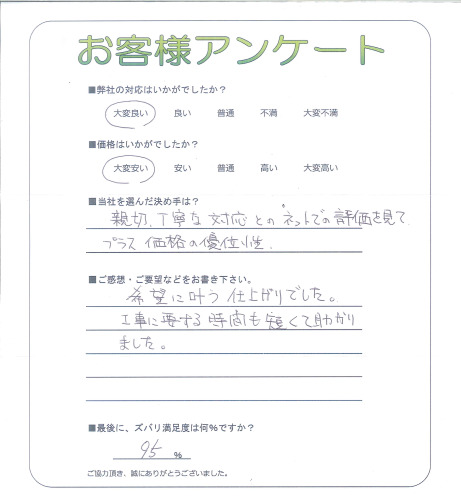 お客様アンケート
■弊社の対応はいかがでしたか？
大変良い 良い 普通 不満 大変不満
■価格はいかがでしたか？
大変安い 安い 普通 高い 大変高い
■当社を選んだ決め手は？
親切、丁寧な対応とのネットでの評価を見て
プラス価格の優位性.
■ご感想・ご要望などをお書き下さい。
希望に叶う仕上がりでした。
工事に要する時間も短くて助かり
ました。
■最後に、ズバリ満足度は何％ですか？
95 ％
ご協力頂き、誠にありがとうございました。